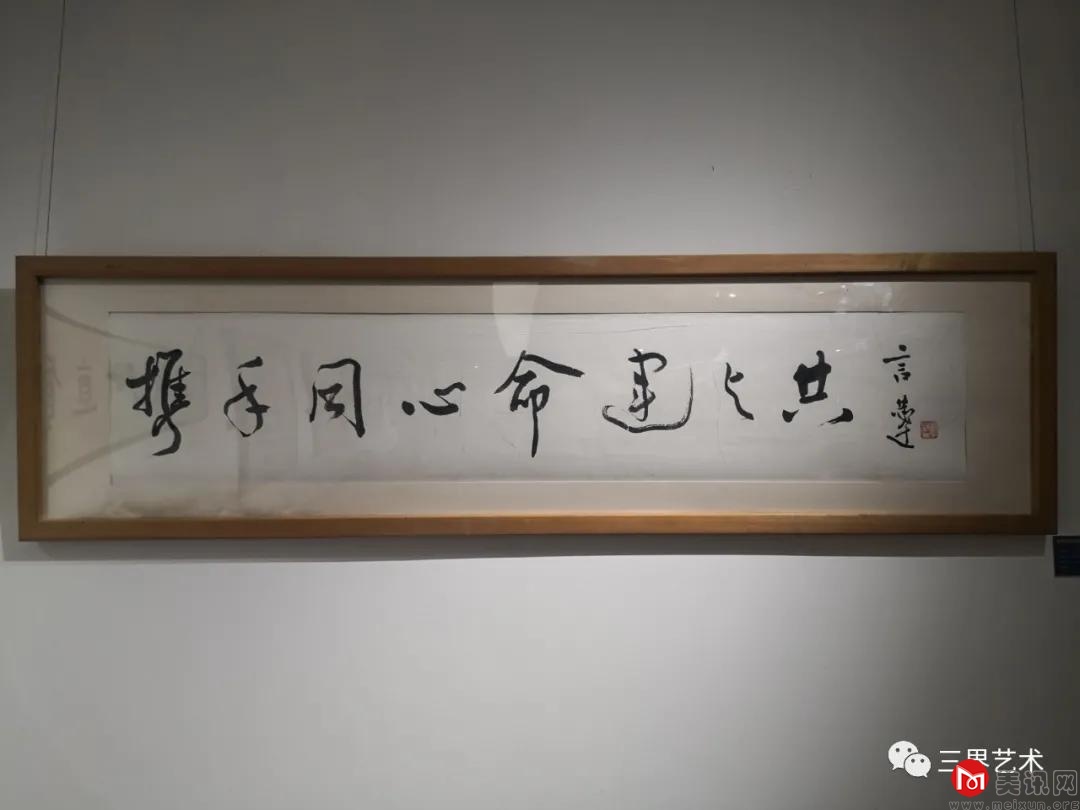 携手同心命運与共
言恭达
三界艺术
美讯网
www.meixun.org